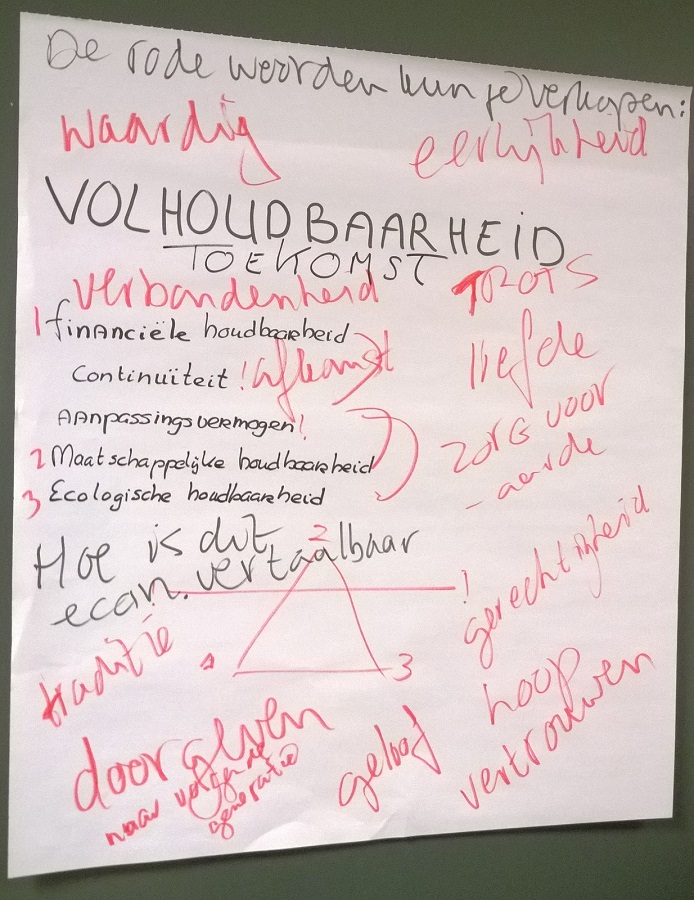 De rode woorden kun je verkopen:
waardig
eerlijkheid
VOLHOUDBAARHEID
TOEKOMST
verbondenheid
TROTS
1 financiële houdbaarheid
liefde
Continuïteit ! afkomst
Aanpassingsvermogen!
zorg voor
- aarde
2 Maatschappelijke houdbaarheid
3 Ecologische houdbaarheid
Hoe is dit
econ. vertaalbaar
2
!
gerechtigheid
traditie
1
3
hoop
vertrouwen
doorgeven
naar volgende
generatie
geloof